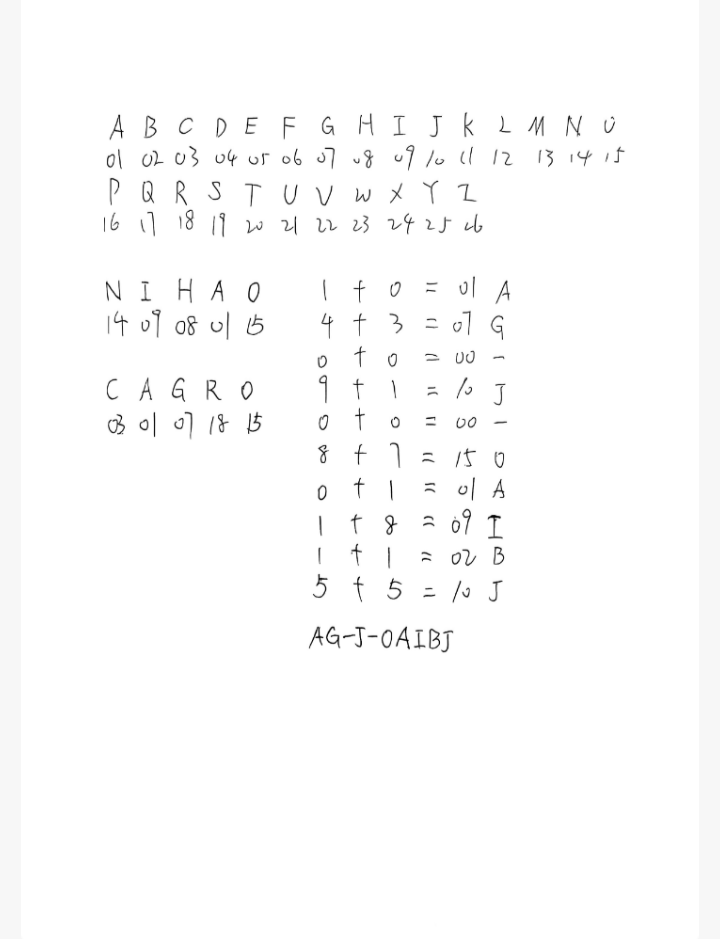 A B C D E F G H I J K L M N O
01 02 03 04 05 06 07 08 09 10 11 12 13 14 15
P Q R S T U V W X Y Z
16 17 18 19 20 21 22 23 24 25 26
N I H A O
14 09 08 01 15
C A G R O
03 01 07 18 15
1 + 0 = 01 A
4 + 3 = 07 G
0 + 0 = 00 -
9 + 1 = 10 J
0 + 0 = 00 -
8 + 7 = 15 O
0 + 1 = 01 A
1 + 8 = 09 I
1 + 1 = 02 B
5 + 5 = 10 J
AG-J-OAIBJ